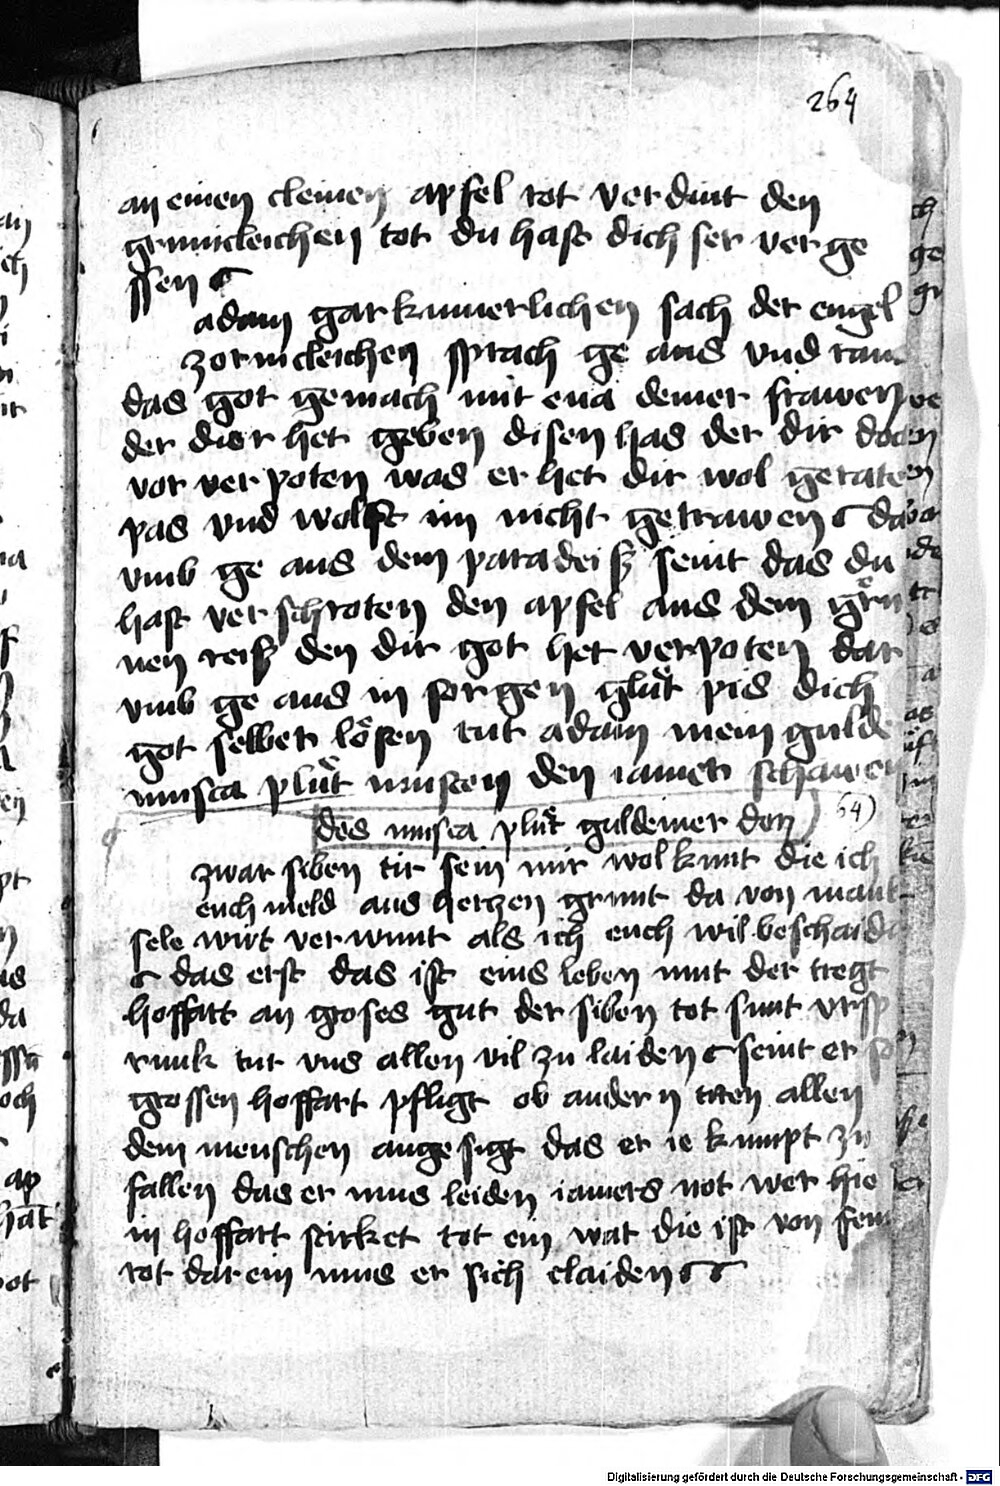 264
an einen cleinen apfel rot verdint den
grimicleichen tot du hast dich ser verge
ssen
adam gar kumerlichen sach der engel
zornicleichen sprach ge aus vnd raum
das got gemach mit eua deiner frawen
der dir het geben disen has der dir
vor verpoten was er het dir wol geraten
pas vnd wolst im nicht getrawen dar
vmb ge aus dem paradeisz seint das du
hast verschroten den apfel aus dem grů
nen reisz den dir got het verpoten dar
vmb ge aus in sorgen glůt pis dich
got selber lősen tut adam mein gulde
musca plůt musten den iamer schawen
des musca plůt guldeiner don 64)
zwar siben tir sein mir wol kunt die ich
euch meld aus hertzen grunt da von
sele wirt verwunt als ich euch wil beschaiden
das erst das ist eins leben mut der tregt
hoffart an groses gut der siben tot sunt vrsp
runk tut vns allen vil zu laiden seint er so
grossen hoffart pfligt ob andern tiren allen
dem menschen angesigt das er ie kumpt zu
fallen das er mus leiden iamers not wer hie
in hoffart stirket tot ein wat die ist von feur
rot darein mus er sich claiden
Digitalisierung gefördert durch die Deutsche Forschungsgemeinschaft - DFG